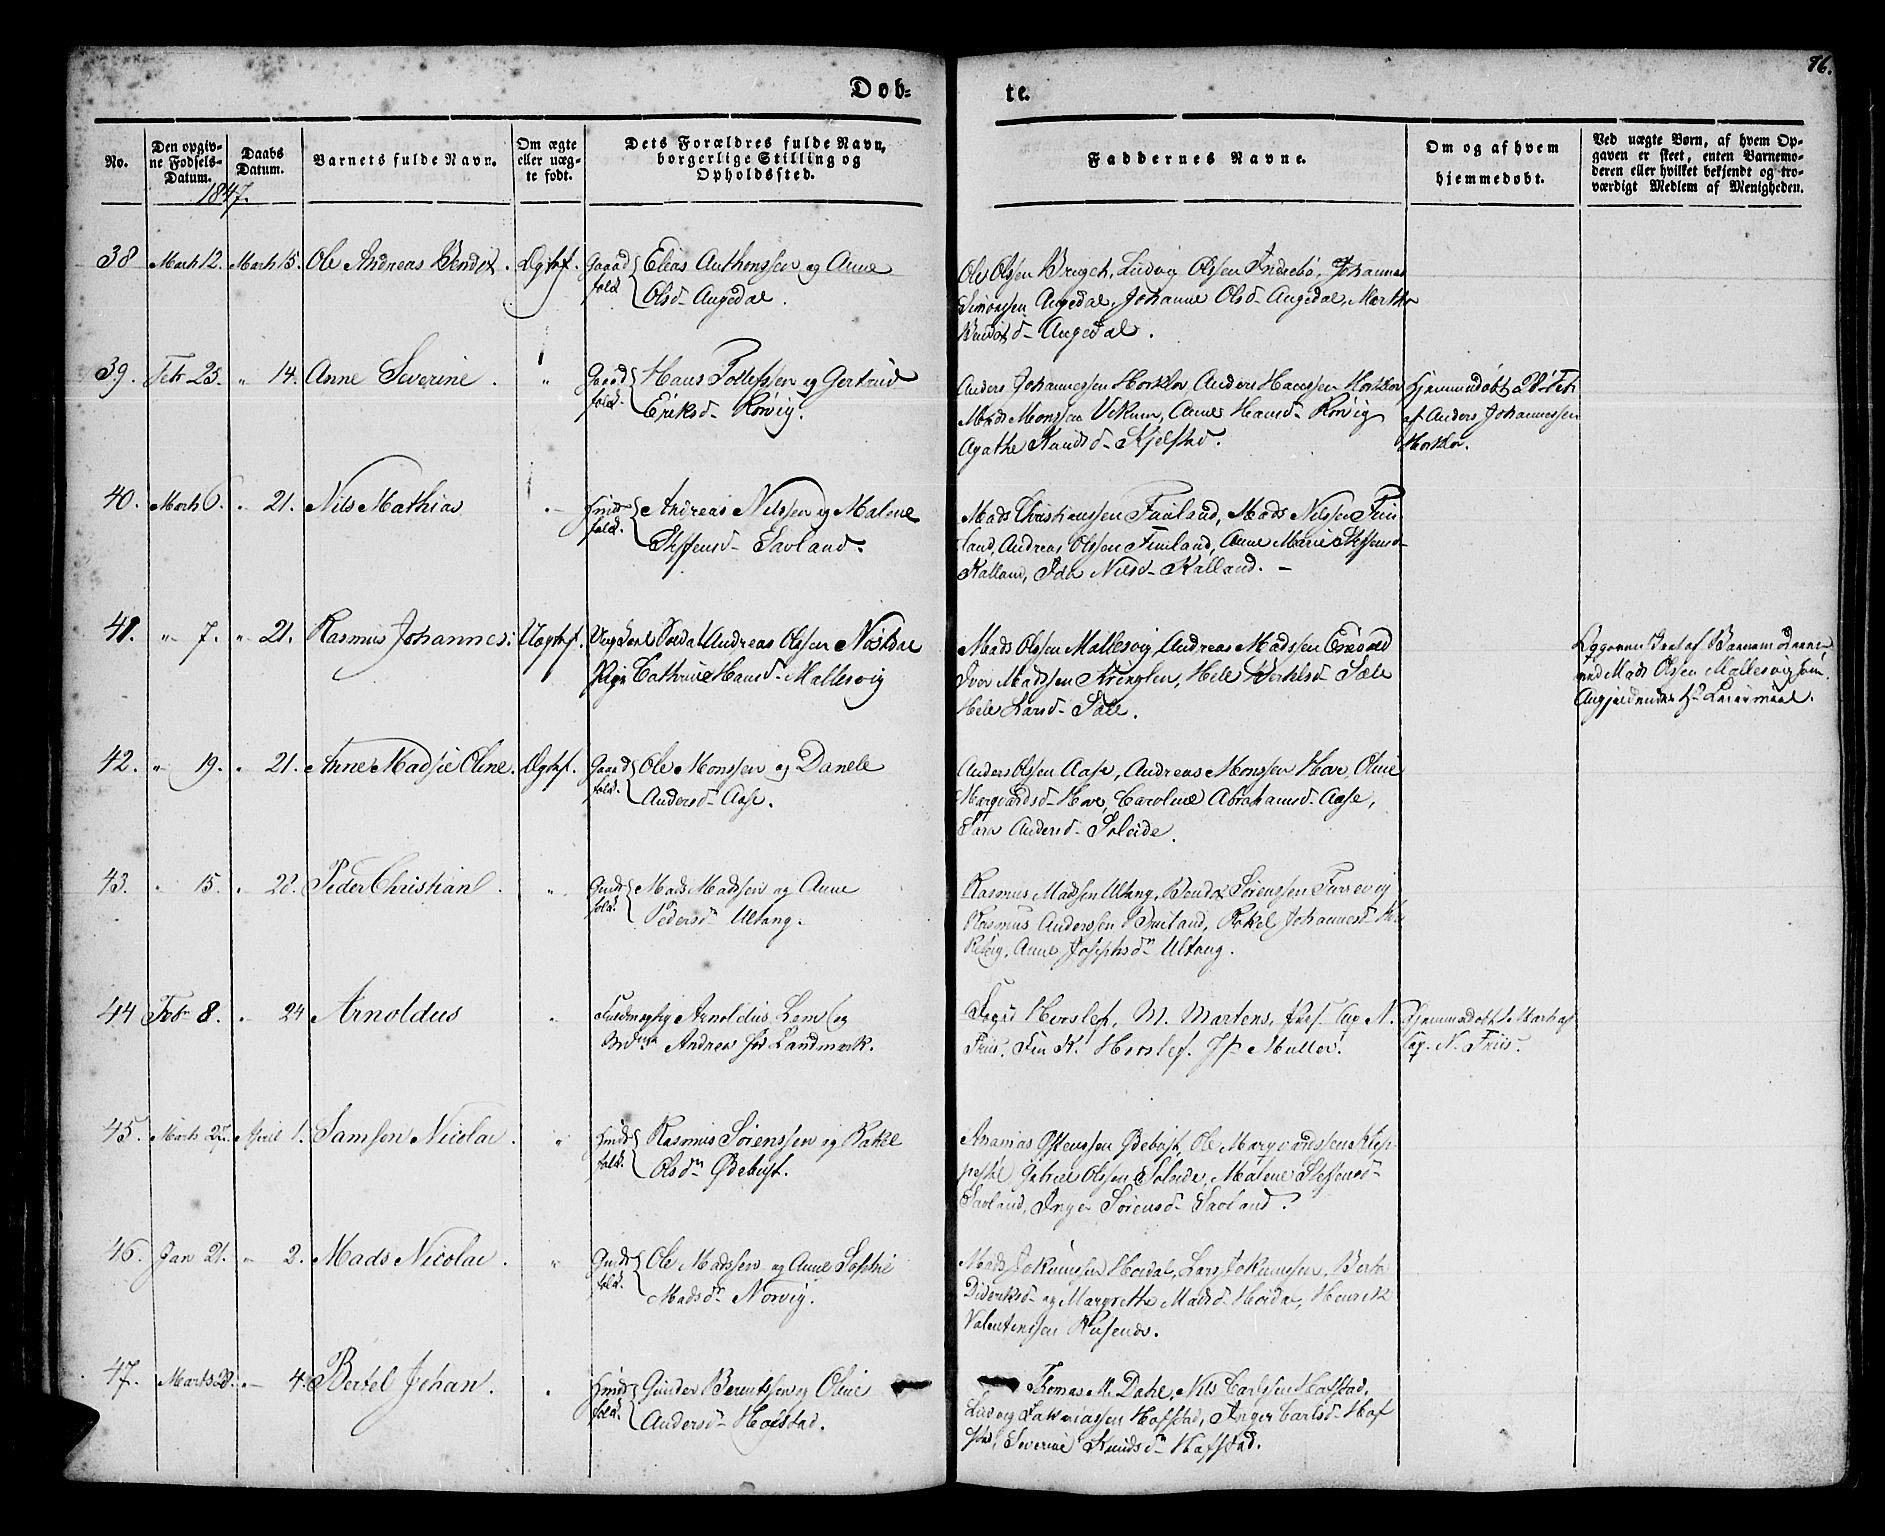 96.
Døb-
te.
No.
Den opgiv-
ne Fødsels-
Datum.
Daabs
Datum.
1847.
Barnets fulde Navn.
Om ægte
eller uæg-
te født.
Dets Forældres fulde Navn,
borgerlige Stilling og
Opholdssted.
Faddernes Navne.
Om og af hvem
hjemmedøbt.
Ved uægte Børn, af hvem Op-
gaven er skeet, enten Barnemo-
deren eller hvilket bekjendt og tro-
værdigt Medlem af Menigheden.
38 Marts 12. Marts 15. Ole Andreas Bendix. Ægtef. Gaard Elias Anthonssen og Anne
fold. Olsd- Angedal.
Ole Olsen Bruget, Ludvig Olssen Indrebø, Johannes
Simonssen Angedal, Johanne Olsd- Angedal, Marthe
Bendixd- Angedal.
39. Febr 23. " 14. Anne Severine. " Gaard Hans Tollefssen og Gertrud
fold. Eriksd- Rørvig.
Anders Johannessen Horklov Anders Hanssen Horklov
Mads Monssen Vekum, Anne Hansd- Rørvig
Agathe Knudsd- Kjelstad.
Hjemmedøbt Febr
af Anders Johannessen
Horklov.
40. Marts 6. " 21. Nils Mathias " Andreas Nilssen og Malene
fold. Steffensd- Savland.
Mads Christianssen Fuuland, Mads Nilssen Fuu
land, Andreas Olssen Fuuland, Anne Marie Steffensd-
Kalland, Ida Nilsd- Kalland. -
41. " 7. " 21. Rasmus Johannes. Uægtef. Ungkarl Soldat Andreas Olssen Nøstdal
Pige Cathrine Hansd- Mallesvig
Mads Olssen Mallesvig, Andreas Madssen
Iver Madssen Kringlen, Hele Bertelsd- Sæle
Hele Larsd- Sæle.
Opgaven skeet af Barnemoderen
ved Mads Olssen Mallesvig som
Angjældendes Leiermaal.
42. " 19. " 21. Anne Madsie Oline. Ægtef. Gaard Ole Monssen og Danele
fold. Andersd- Aase.
Anders Olssen Aase, Andreas Monssen Hove Oline
Marqvardsd- Hove, Caroline Abrahamsd- Aase,
Sara Andersd- Soleide.
43. " 15. " 20. Peder Christian. " Mads Madssen og Anne
fold. Pedersd- Ultang.
Rasmus Madssen Ultang, Bendix Sørenssen Furevig
Rasmus Anderssen Fuuland, Rakel Johannesd-
Anne Josephsdn Ultang.
44 Febr 8. " 24 Arnoldus " Fuldmægtig Arnoldus Lem og
Andrea Landmark.
Herslef, M. Martens, Cap N.
Friis. K. Herslef. Müller.
Hjemmedøbt Marts af
Cap. N. Friis.
45. Marts 27. April 1. Samson Nicolai. " Rasmus Sørenssen og Rakel
fold. Olsdn Ødebyst.
Ananias Østenssen Ødebyst, Ole Marqvardssen Klop-
Gabriel Olssen Soleide, Malene Steffensd-
Savland, Inger Sørensd- Savland.
46. Jan 21. " 2. Mads Nicolai. " Ole Madssen og Anne Sophie
fold. Madsdn Norvig.
Mads Jokumssen Hovdal, Lars Jokumssen, Berte
Dideriksd- og Margrethe Madsd- Hovdal, Henrik
Valentinssen
47. Marts 28. " 4. Bertel Johan. " Gunder Berentssen og Oline
fold. Andersd- Hafstad.
Thomas M. Dahl, Nils Carlssen Hafstad,
Ludvig Zakariassen Hafstad, Inger Carlsd- Haf
stad, Severine Knudsdn Hafstad.